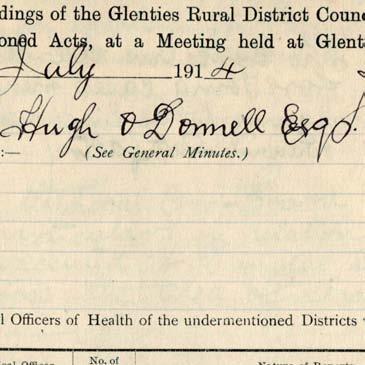 dings of the Glenties Rural District Coun
oned Acts, at a Meeting held at Glent
July 1914
Hugh O'Donnell Esq J.
:— (See General Minutes.)
l Officers of Health of the undermentioned Districts
No. of